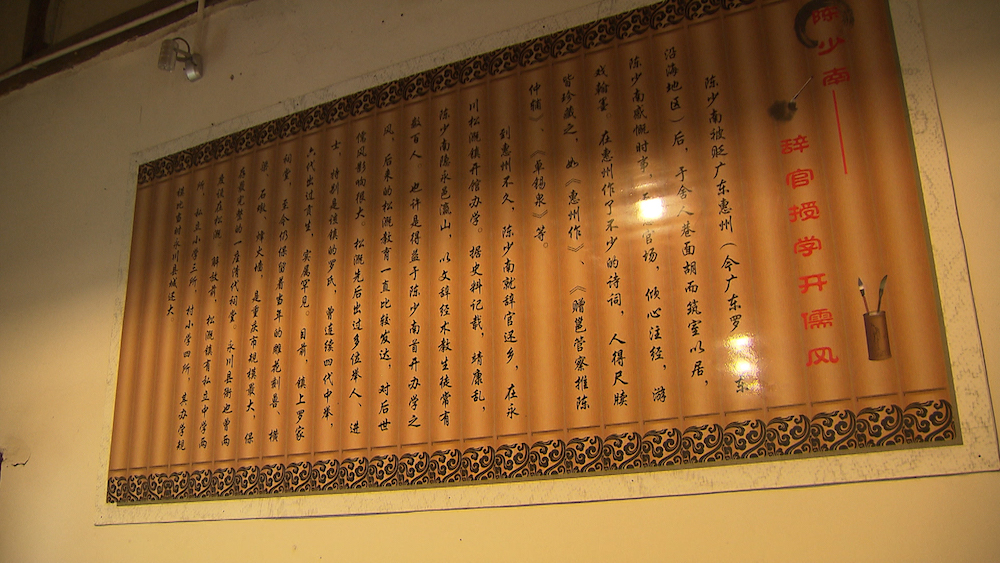 陈少南——
辞官授学开儒风
陈少南被贬广东惠州（今广东罗 东
沿海地区）后，于舍人巷面胡而筑室以居，
陈少南感慨时事，官场，倾心注经，游
戏翰墨。在惠州作了不少的诗词，人得尺牍
皆珍藏之，如《惠州作》、《赠邕管察推陈
仲辅》、《卓锡泉》等。
到惠州不久，陈少南就辞官还乡，在永
川松溉镇开馆办学。据史料记载，靖康乱，
陈少南隐永邑瀛山，以文辞经术教生徒常有
数百人 也许是得益于陈少南首开办学之
风，后来的松溉教育一直比较发达，对后世
儒风影响很大。松溉先后出过多位举人、进
士，特别是该镇的罗氏，曾连续四代中举，
六代出过贡生，实属罕见。目前，镇上罗家
祠堂，至今仍保留着当年的雕花刻兽、横
梁、石墩、烽火墙，是重庆市规模最大、保
存最完整的一座清代祠堂。永川县衙也曾两
度设在松溉 解放前，松溉镇有私立中学两
所，私立小学三所，村小学四所，其办学规
模比当时永川县城还大